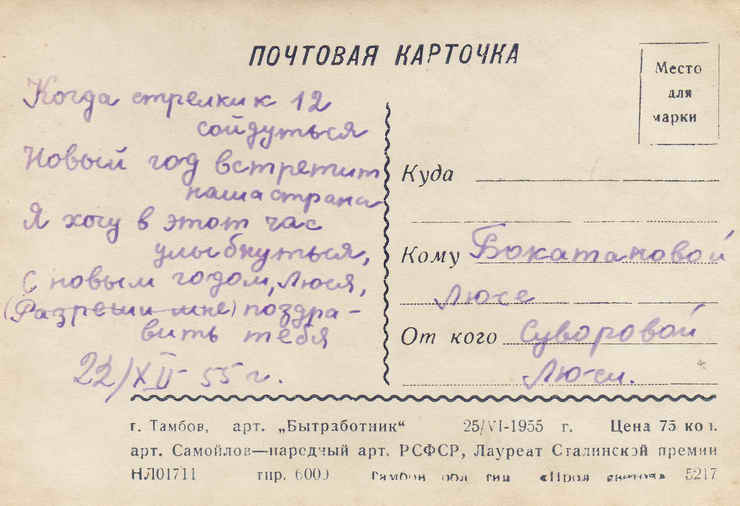 ПОЧТОВАЯ КАРТОЧКА
Место
для
марки
Когда стрелки к 12
сойдуться
Новый год встретит
наша страна
Я хочу в этот час
улыбнуться,
С новым годом, Люся,
(Разреши мне) поздра-
вить тебя
22/XII-55 г.
Куда
Кому Бокатановой
Люсе
От кого Суворовой
Люси.
г. Тамбов, арт. „Бытработник“ 25/VI-1955 г. Цена 75 коп.
арт. Самойлов—народный арт. РСФСР, Лауреат Сталинской премии
НЛ01711 тир. 6000 Тамбов обл тип 5217